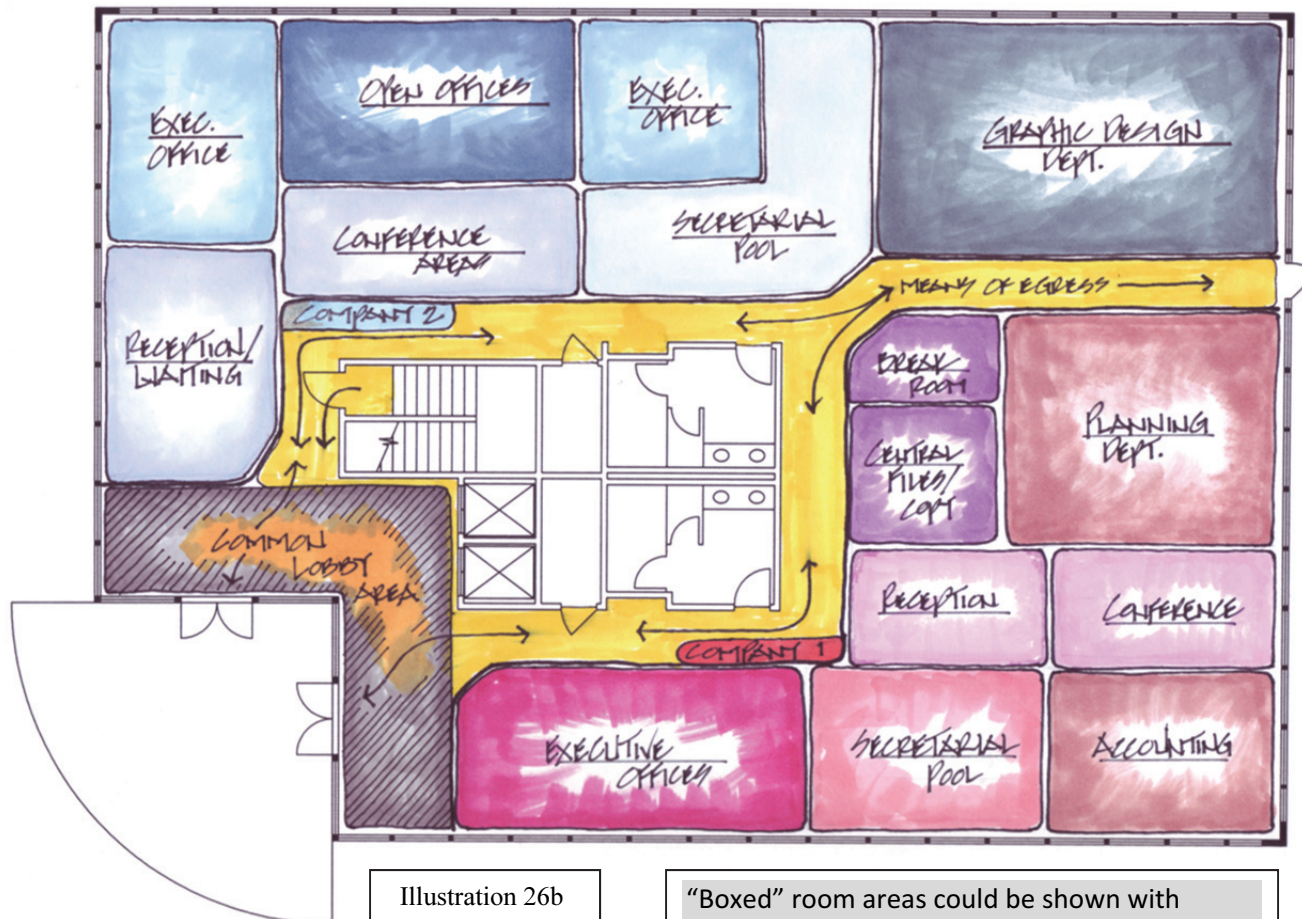 EXEC.
OFFICE
OPEN OFFICES
EXEC.
OFFICE
GRAPHIC DESIGN
DEPT.
CONFERENCE
AREAS
SECRETARIAL
POOL
COMPANY 2
MEANS OF EGRESS
RECEPTION/
WAITING
BREAK
ROOM
PLANNING
DEPT.
CENTRAL
FILES/
COPY
COMMON
LOBBY
AREA
RECEPTION
CONFERENCE
COMPANY 1
EXECUTIVE
OFFICES
SECRETARIAL
POOL
ACCOUNTING
Illustration 26b
“Boxed” room areas could be shown with